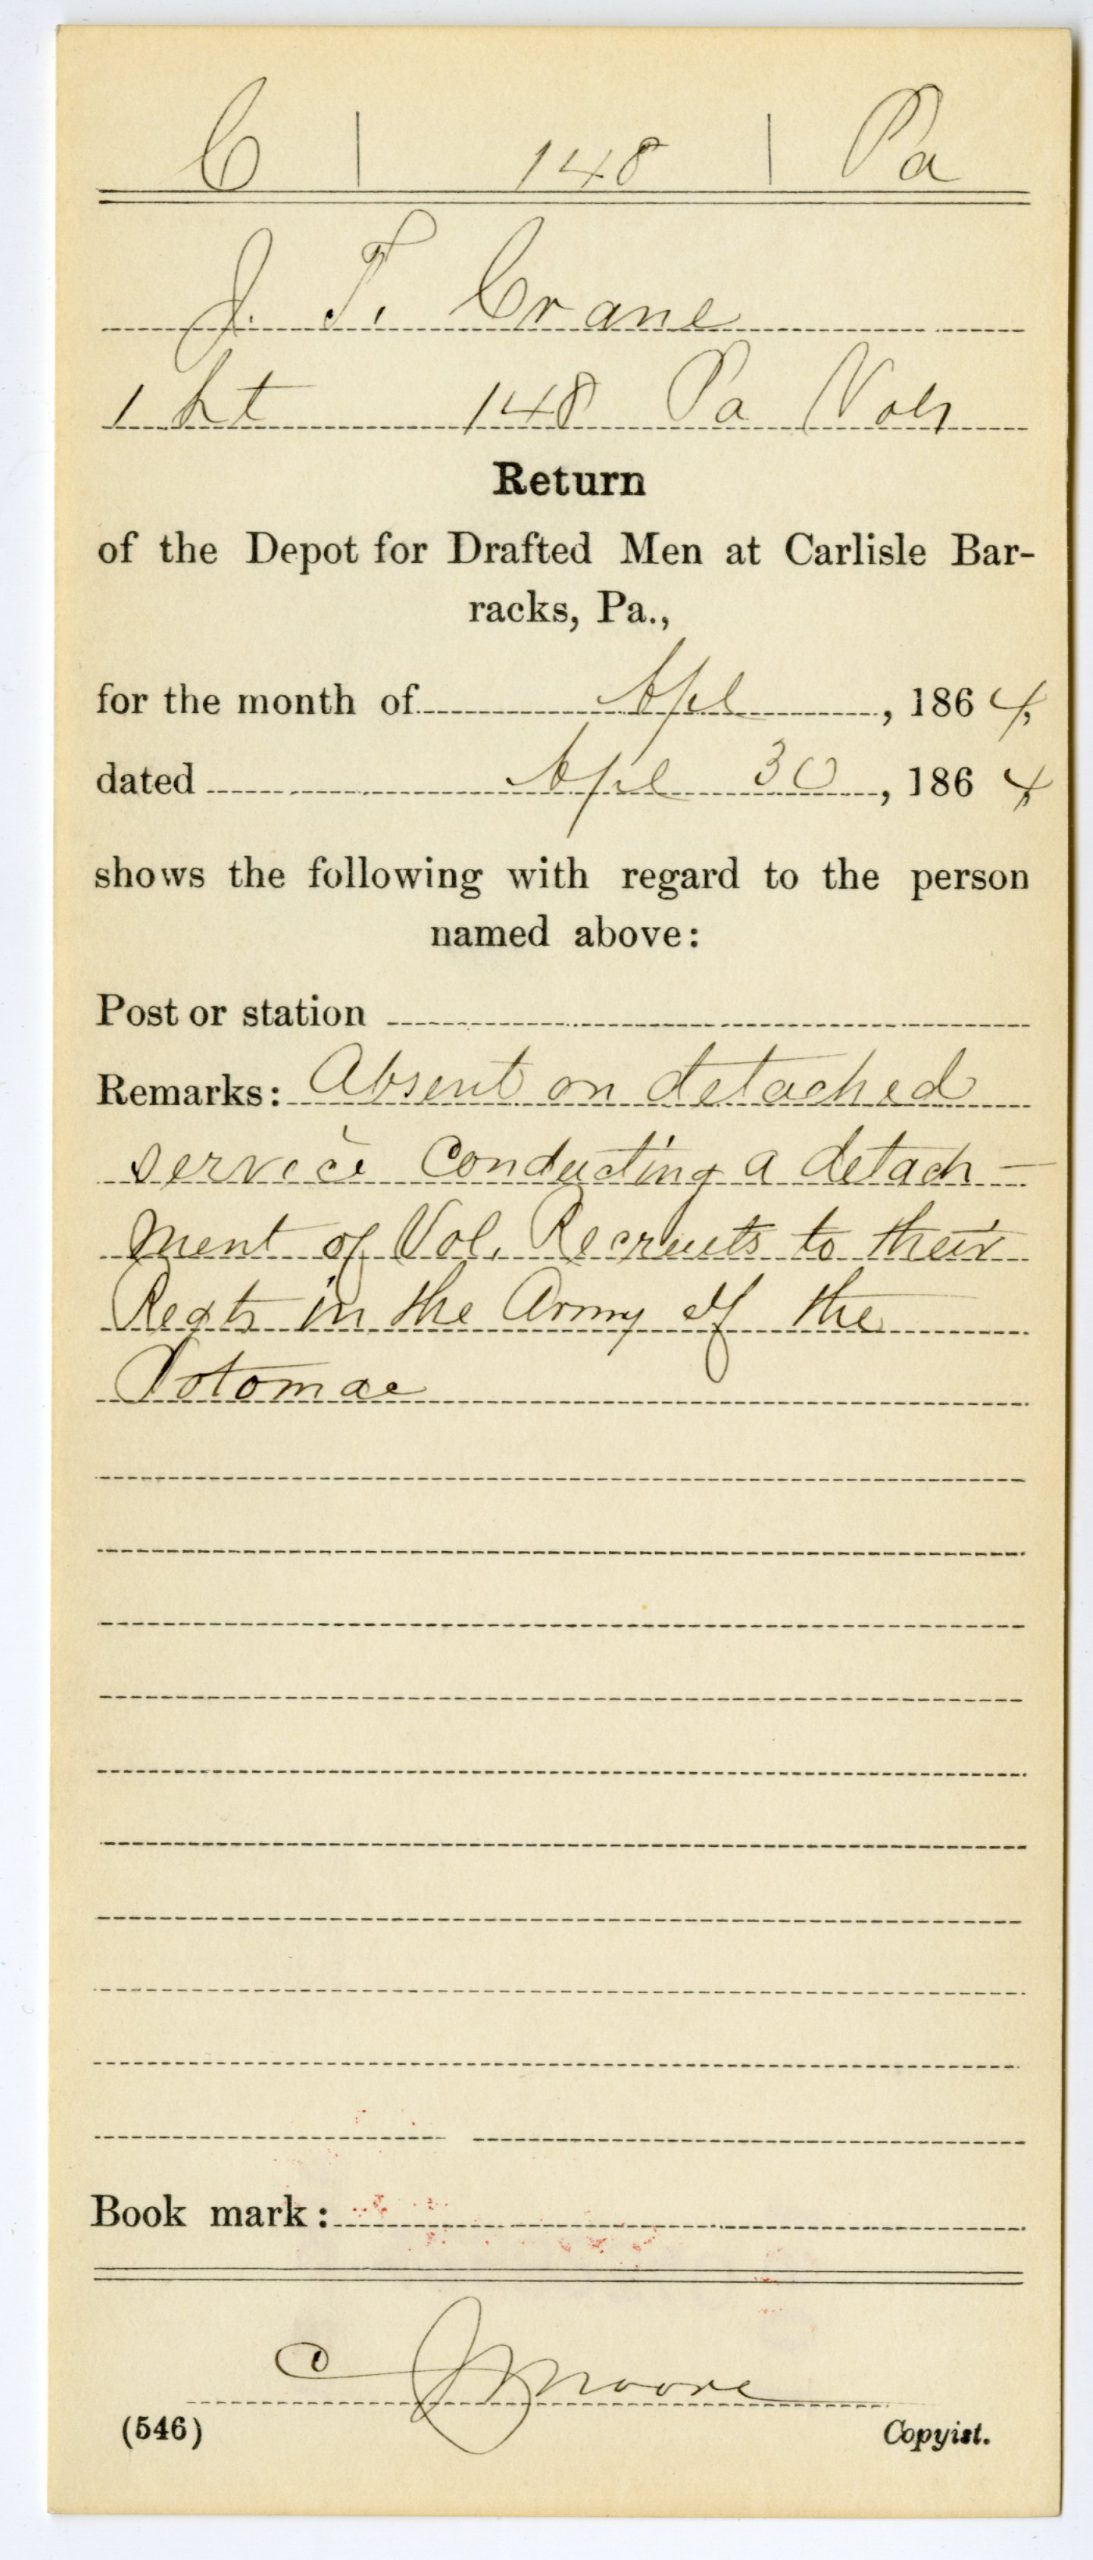 C | 148 | Pa
J. T. Crane
1 Lt 148 Pa Vols
Return
of the Depot for Drafted Men at Carlisle Bar-
racks, Pa.,
for the month of Apl, 1864,
dated Apl 30, 1864,
shows the following with regard to the person
named above:
Post or station
Remarks: Absent on detached
service conducting a detach-
ment of Vol. Recruits to their
Regts in the Army of the
Potomac
Book mark:
C J Moore
(546) Copyist.